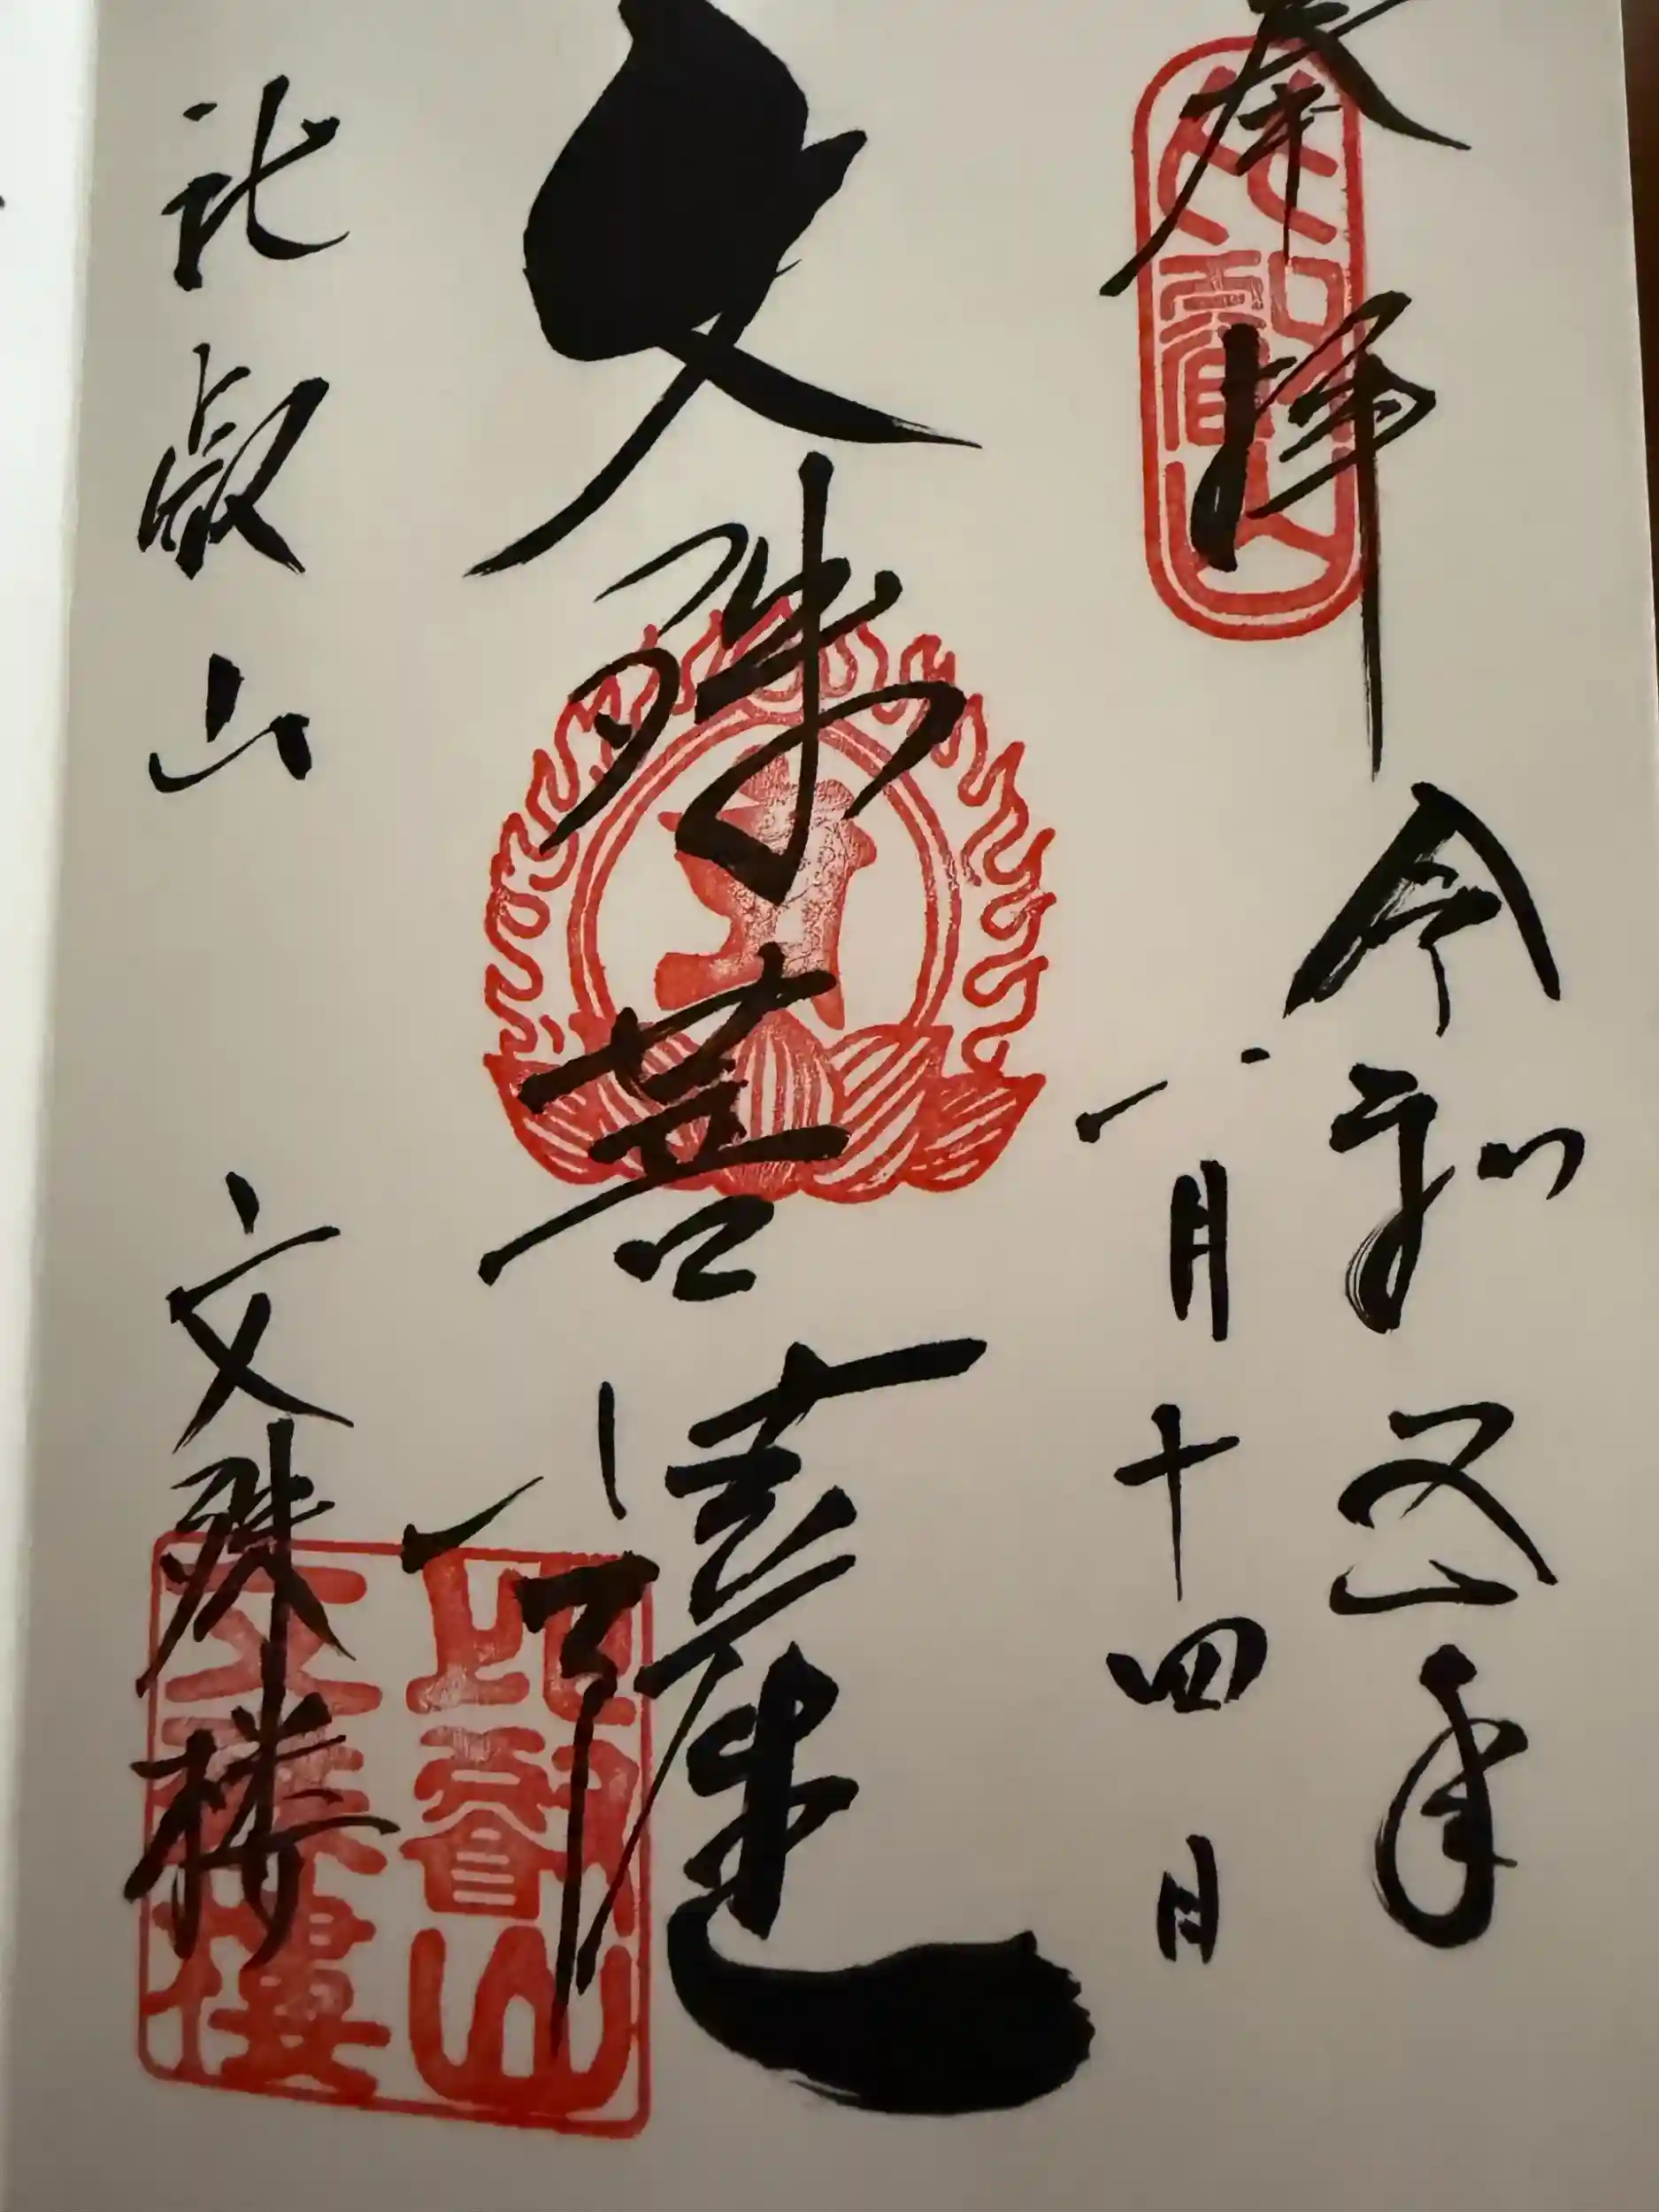 奉拝
比叡山
令和五年
一月十四日
文殊菩薩
比叡山
文殊楼
比叡山
文殊樓